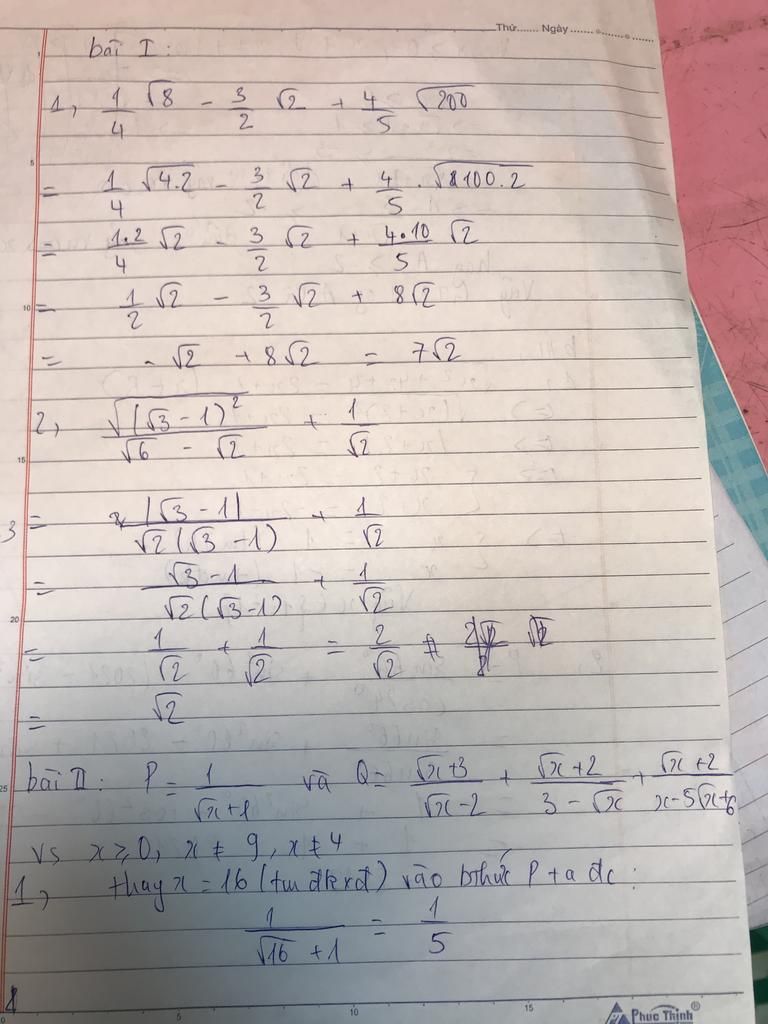 Thứ...... Ngày ...................
bài I :
1, 1/4 √8 - 3/2 √2 + 4/5 √200
= 1/4 √4.2 - 3/2 √2 + 4/5 . √100.2
= 1.2/4 √2 - 3/2 √2 + 4.10/5 √2
= 1/2 √2 - 3/2 √2 + 8√2
= -√2 + 8√2 = 7√2
2, √(√3-1)² / (√6 - √2) + 1/√2
= |√3-1| / √2(√3-1) + 1/√2
= (√3-1) / √2(√3-1) + 1/√2
= 1/√2 + 1/√2 = 2/√2
= √2
bài II : P = 1/(√x+1) và Q = (√x+3)/(√x-2) + (√x+2)/(3-√x) + (√x+2)/(x-5√x+6)
vs x ≥ 0, x ≠ 9, x ≠ 4
1, thay x = 16 (tm đkxđ) vào bthức P ta đc :
1/(√16 +1) = 1/5
Phuc Thịnh®